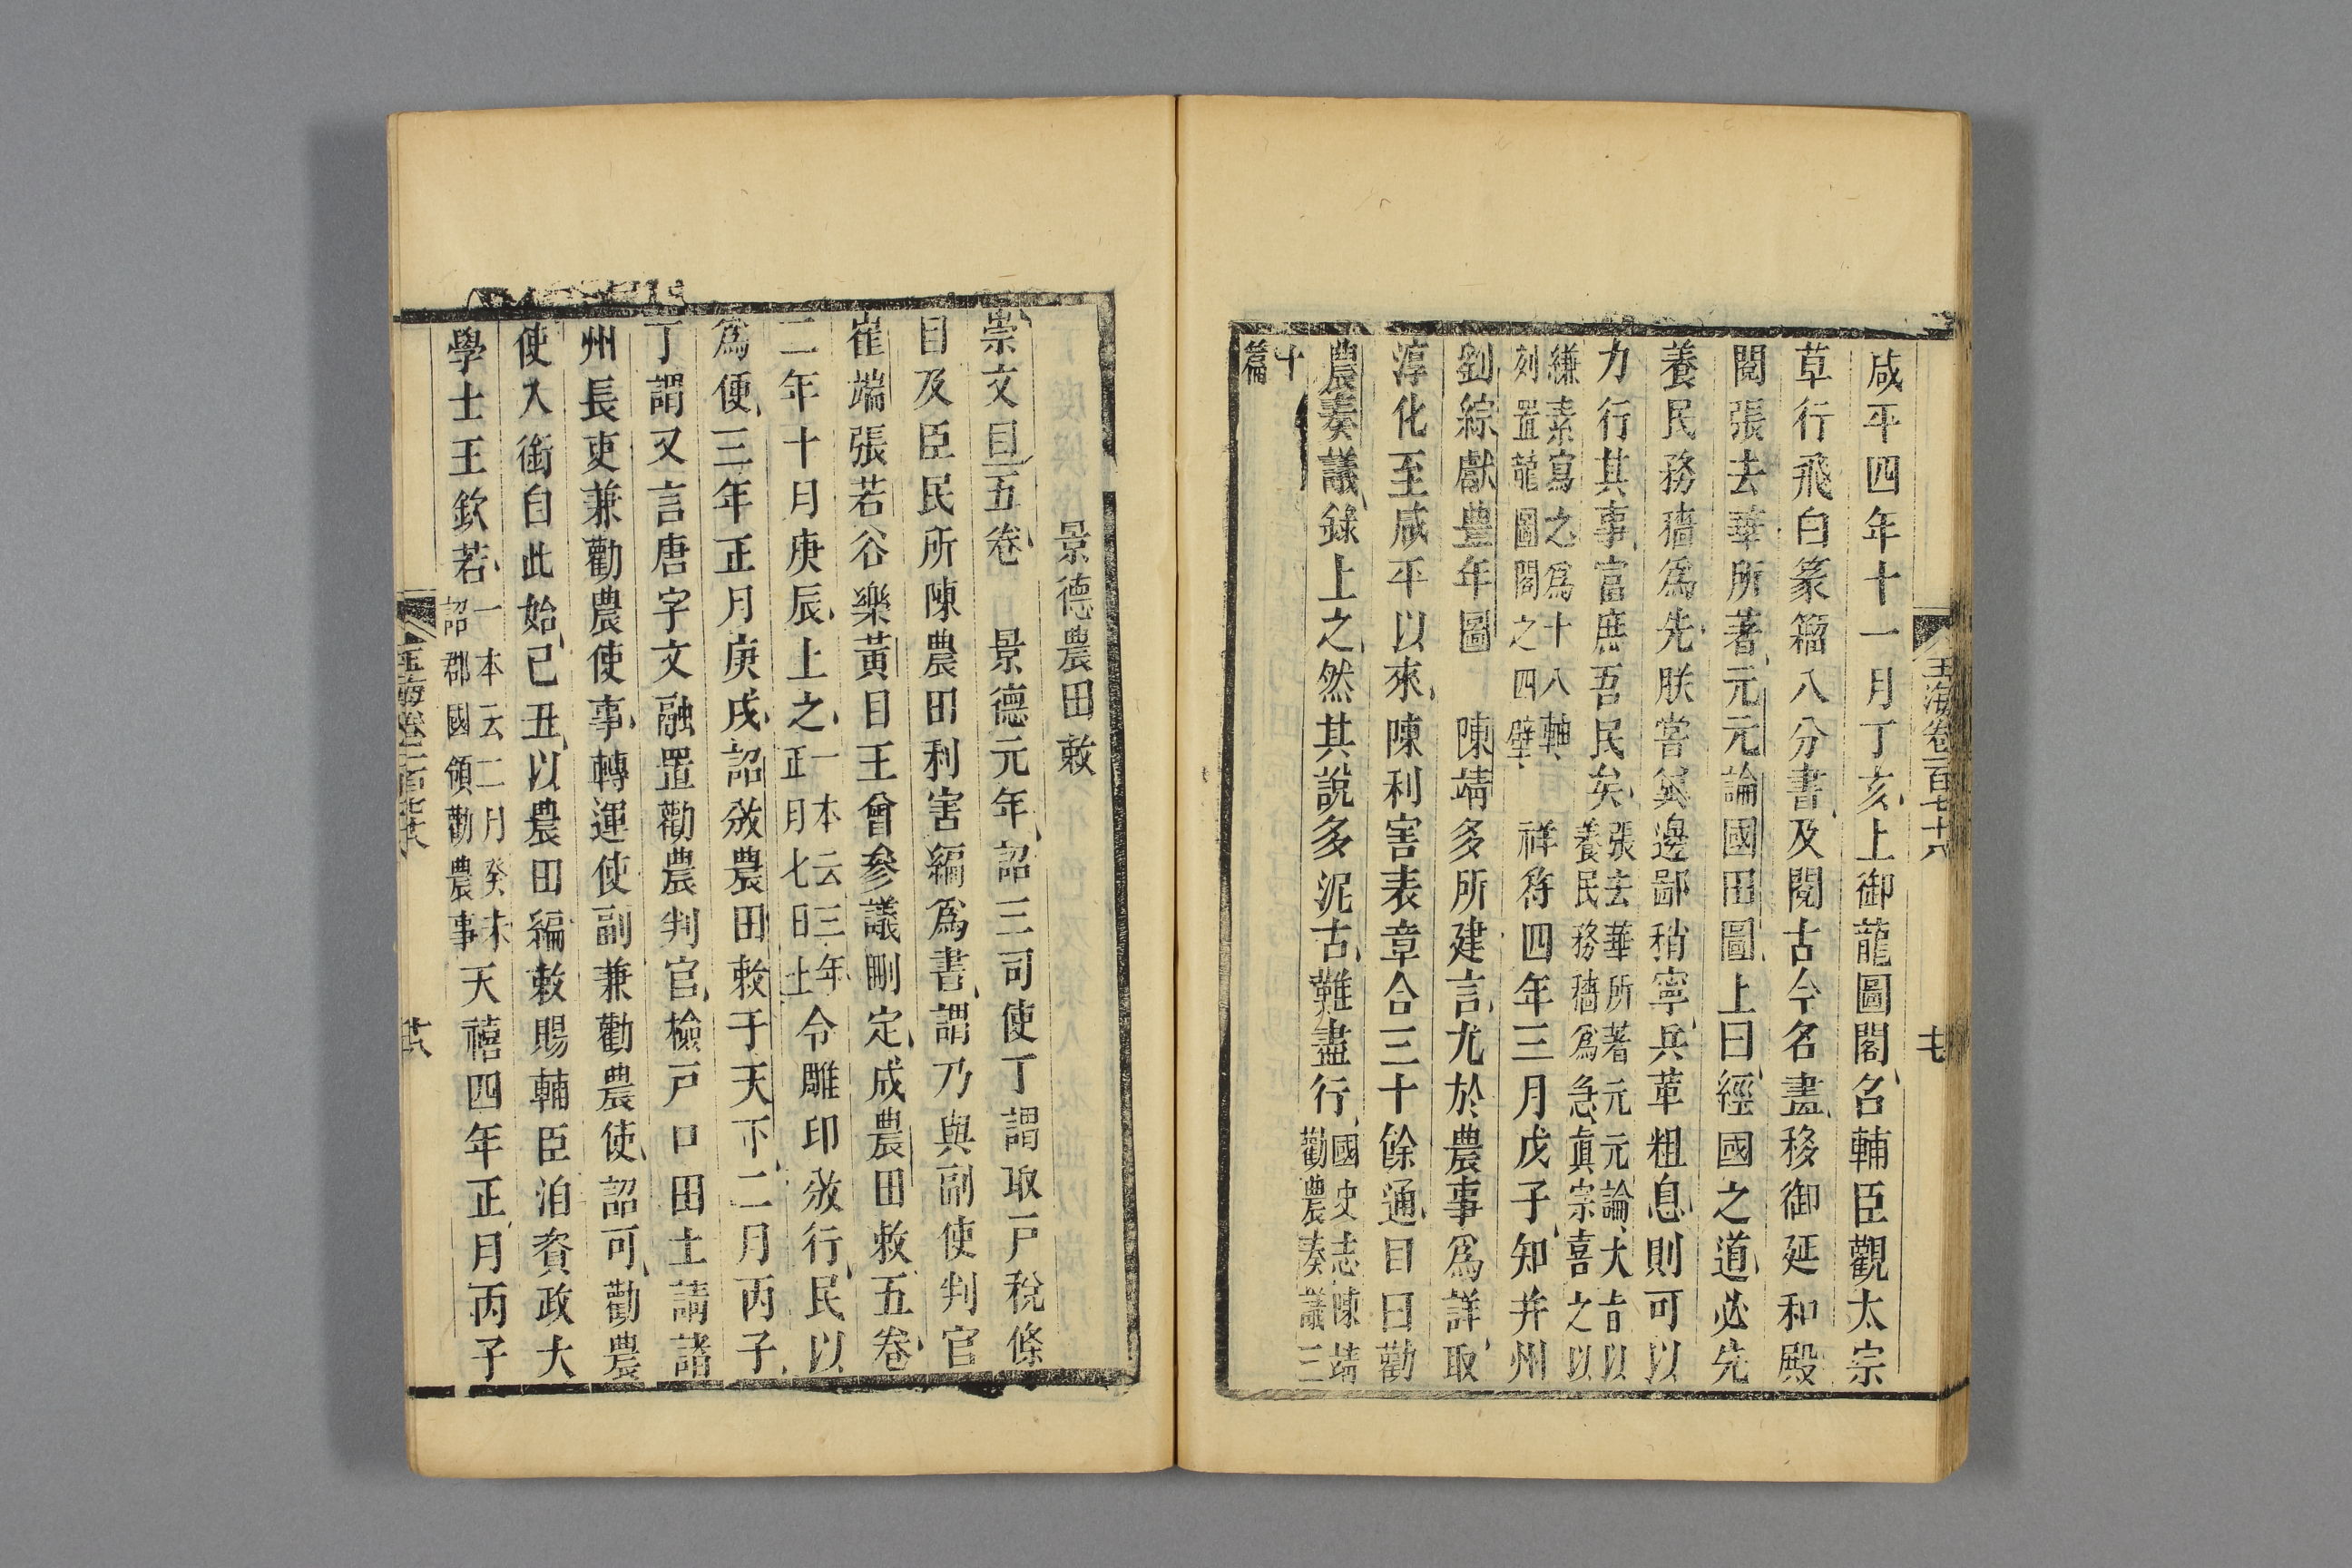 玉海卷一百七十八
七
咸平四年十一月丁亥上御龍圖閣召輔臣觀太宗
草行飛白篆籀八分書及閱古今名畫移御延和殿
閱張去華所著元元論國田圖上曰經國之道必先
養民務穡爲先朕嘗冀邊鄙稍寧兵革粗息則可以
力行其事富庶吾民矣張去華所著元元論大旨以養民務穡爲急真宗喜之以
縑素寫之爲十八軸刻置龍圖閣之四壁 祥符四年三月戊子知并州
劉綜獻豊年圖 陳靖多所建言尤於農事爲詳取
淳化至咸平以來陳利害表章合三十餘通目曰勸
農奏議録上之然其說多泥古難盡行國史志陳靖勸農奏議三
十篇
景德農田敕
崇文目五卷 景德元年詔三司使丁謂取戸稅條
目及臣民所陳農田利害編爲書謂乃與副使判官
崔端張若谷樂黃目王曾參議刪定成農田敕五卷
二年十月庚辰上之一本云三年正月七日上令雕印頒行民以
爲便三年正月庚戌詔頒農田敕于天下二月丙子
丁謂又言唐宇文融置勸農判官檢戸口田土請諸
州長吏兼勸農使事轉運使副兼勸農使詔可勸農
使入銜自此始己丑以農田編敕賜輔臣洎資政大
學士王欽若一本云二月癸未詔郡國領勸農事天禧四年正月丙子
玉海卷一百七十八